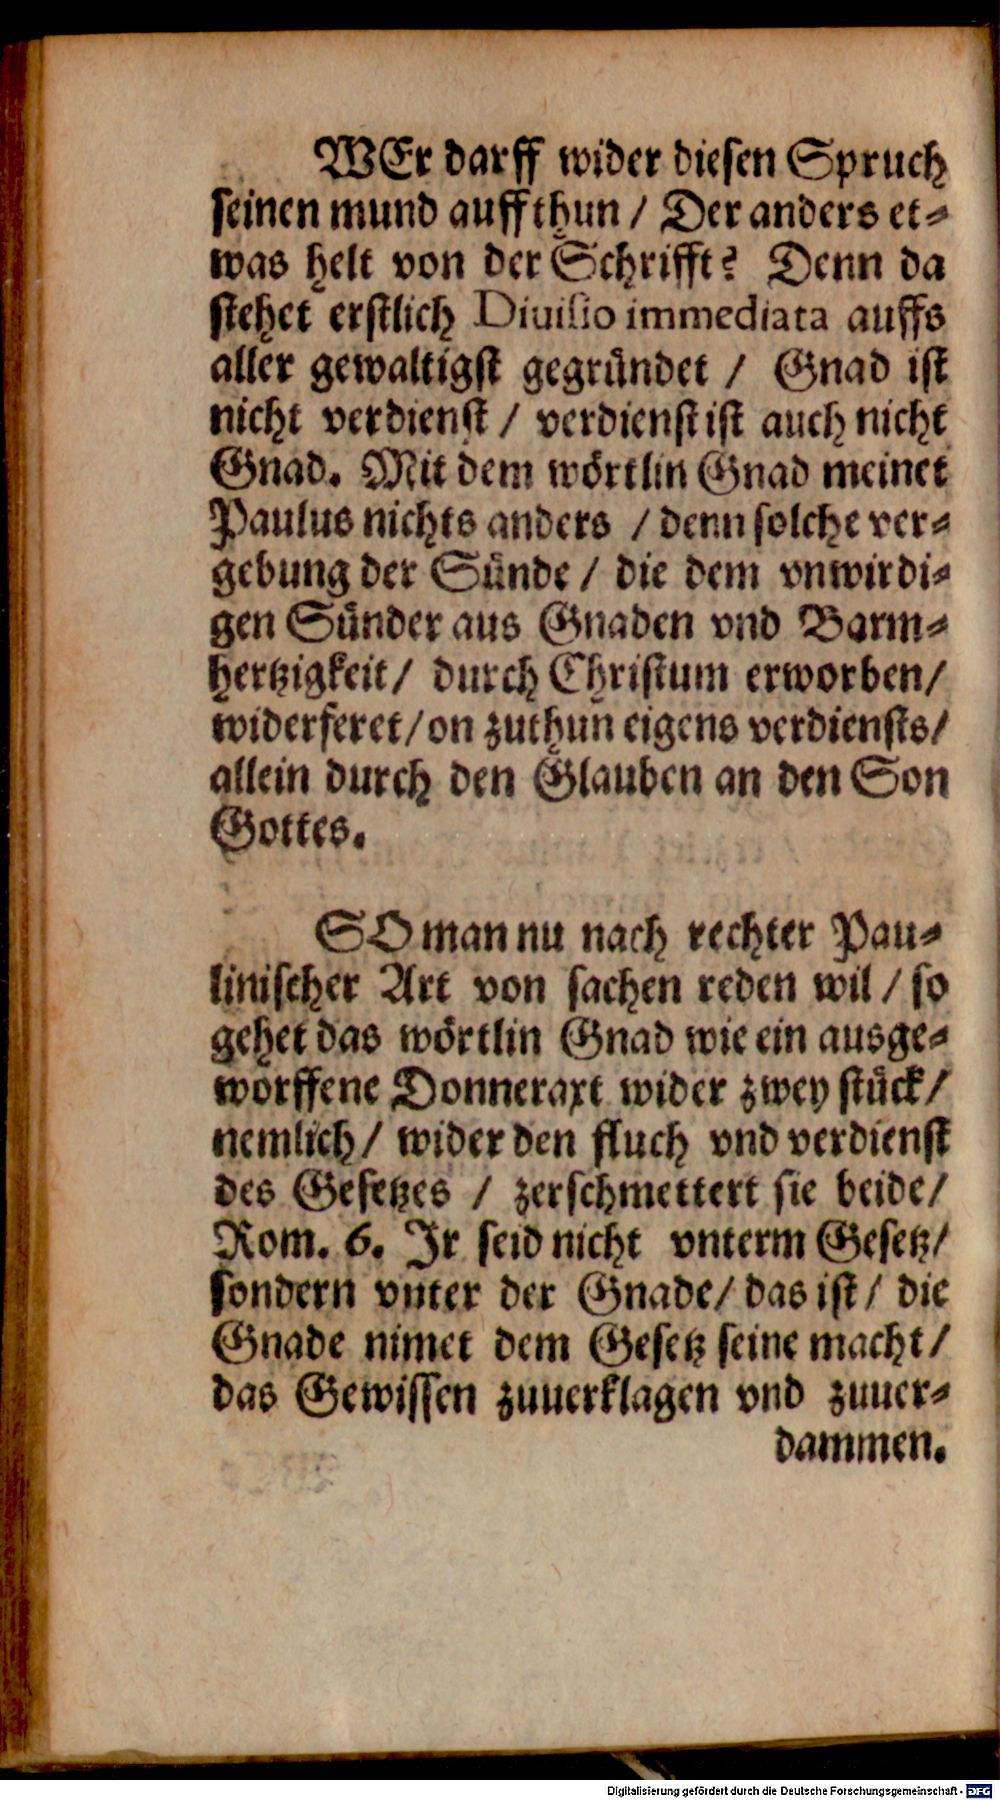 WEr darff wider diesen Spruch
seinen mund auffthun / Der anders et-
was helt von der Schrifft? Denn da
stehet erstlich Diuisio immediata auffs
aller gewaltigst gegründet / Gnad ist
nicht verdienst / verdienst ist auch nicht
Gnad. Mit dem wörtlin Gnad meinet
Paulus nichts anders / denn solche ver-
gebung der Sünde / die dem vnwirdi-
gen Sünder aus Gnaden vnd Barm-
hertzigkeit / durch Christum erworben /
widerferet / on zuthun eigens verdiensts /
allein durch den Glauben an den Son
Gottes.
SO man nu nach rechter Pau-
linischer Art von sachen reden wil / so
gehet das wörtlin Gnad wie ein ausge-
worffene Donneraxt wider zwey stück /
nemlich / wider den fluch vnd verdienst
des Gesetzes / zerschmettert sie beide /
Rom. 6. Jr seid nicht vnterm Gesetz /
sondern vnter der Gnade / das ist / die
Gnade nimet dem Gesetz seine macht /
das Gewissen zuuerklagen vnd zuuer-
dammen.
Digitalisierung gefördert durch die Deutsche Forschungsgemeinschaft - DFG